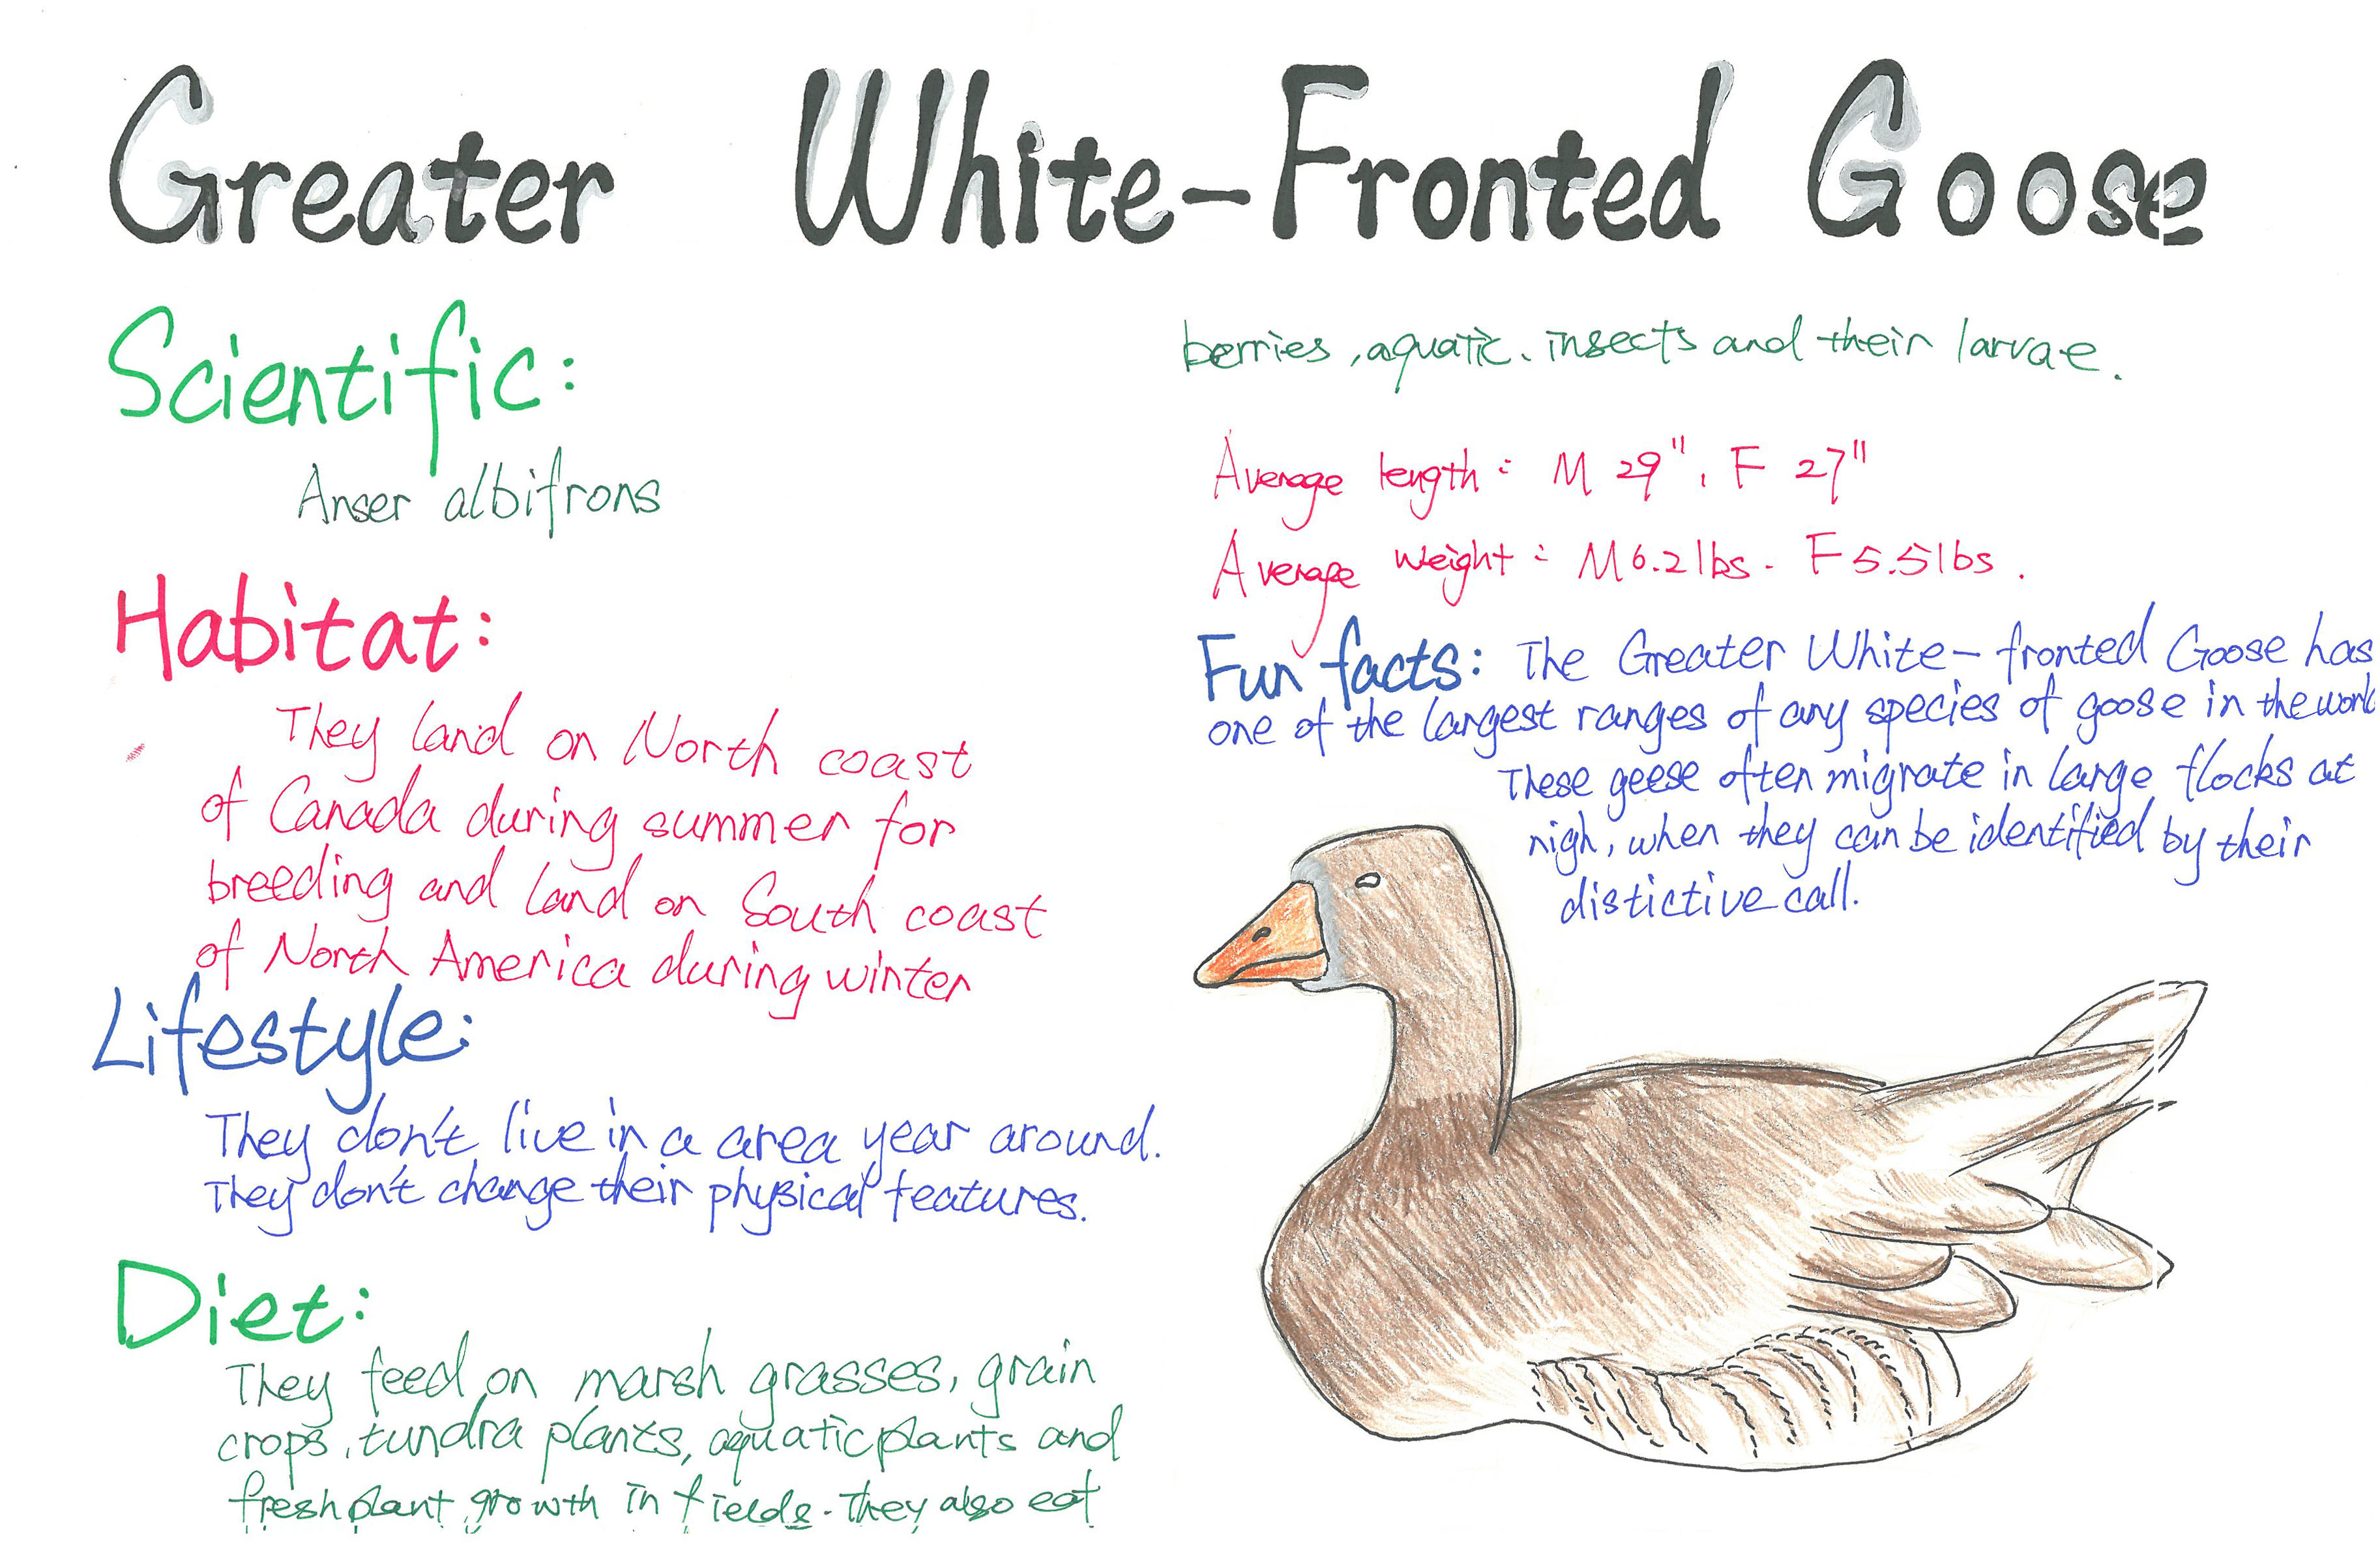 Greater White-Fronted Goose
Scientific:
Anser albifrons
Habitat:
They land on North coast
of Canada during summer for
breeding and land on South coast
of North America during winter
Lifestyle:
They don't live in a area year around.
They don't change their physical features.
Diet:
They feed on marsh grasses, grain
crops, tundra plants, aquatic plants and
fresh plant growth in fields. They also eat
berries, aquatic. insects and their larvae.
Average length: M 29", F 27"
Average weight: M 6.2 lbs. F 5.5 lbs.
Fun facts: The Greater White-fronted Goose has
one of the largest ranges of any species of goose in the world
These geese often migrate in large flocks at
nigh, when they can be identified by their
distictive call.